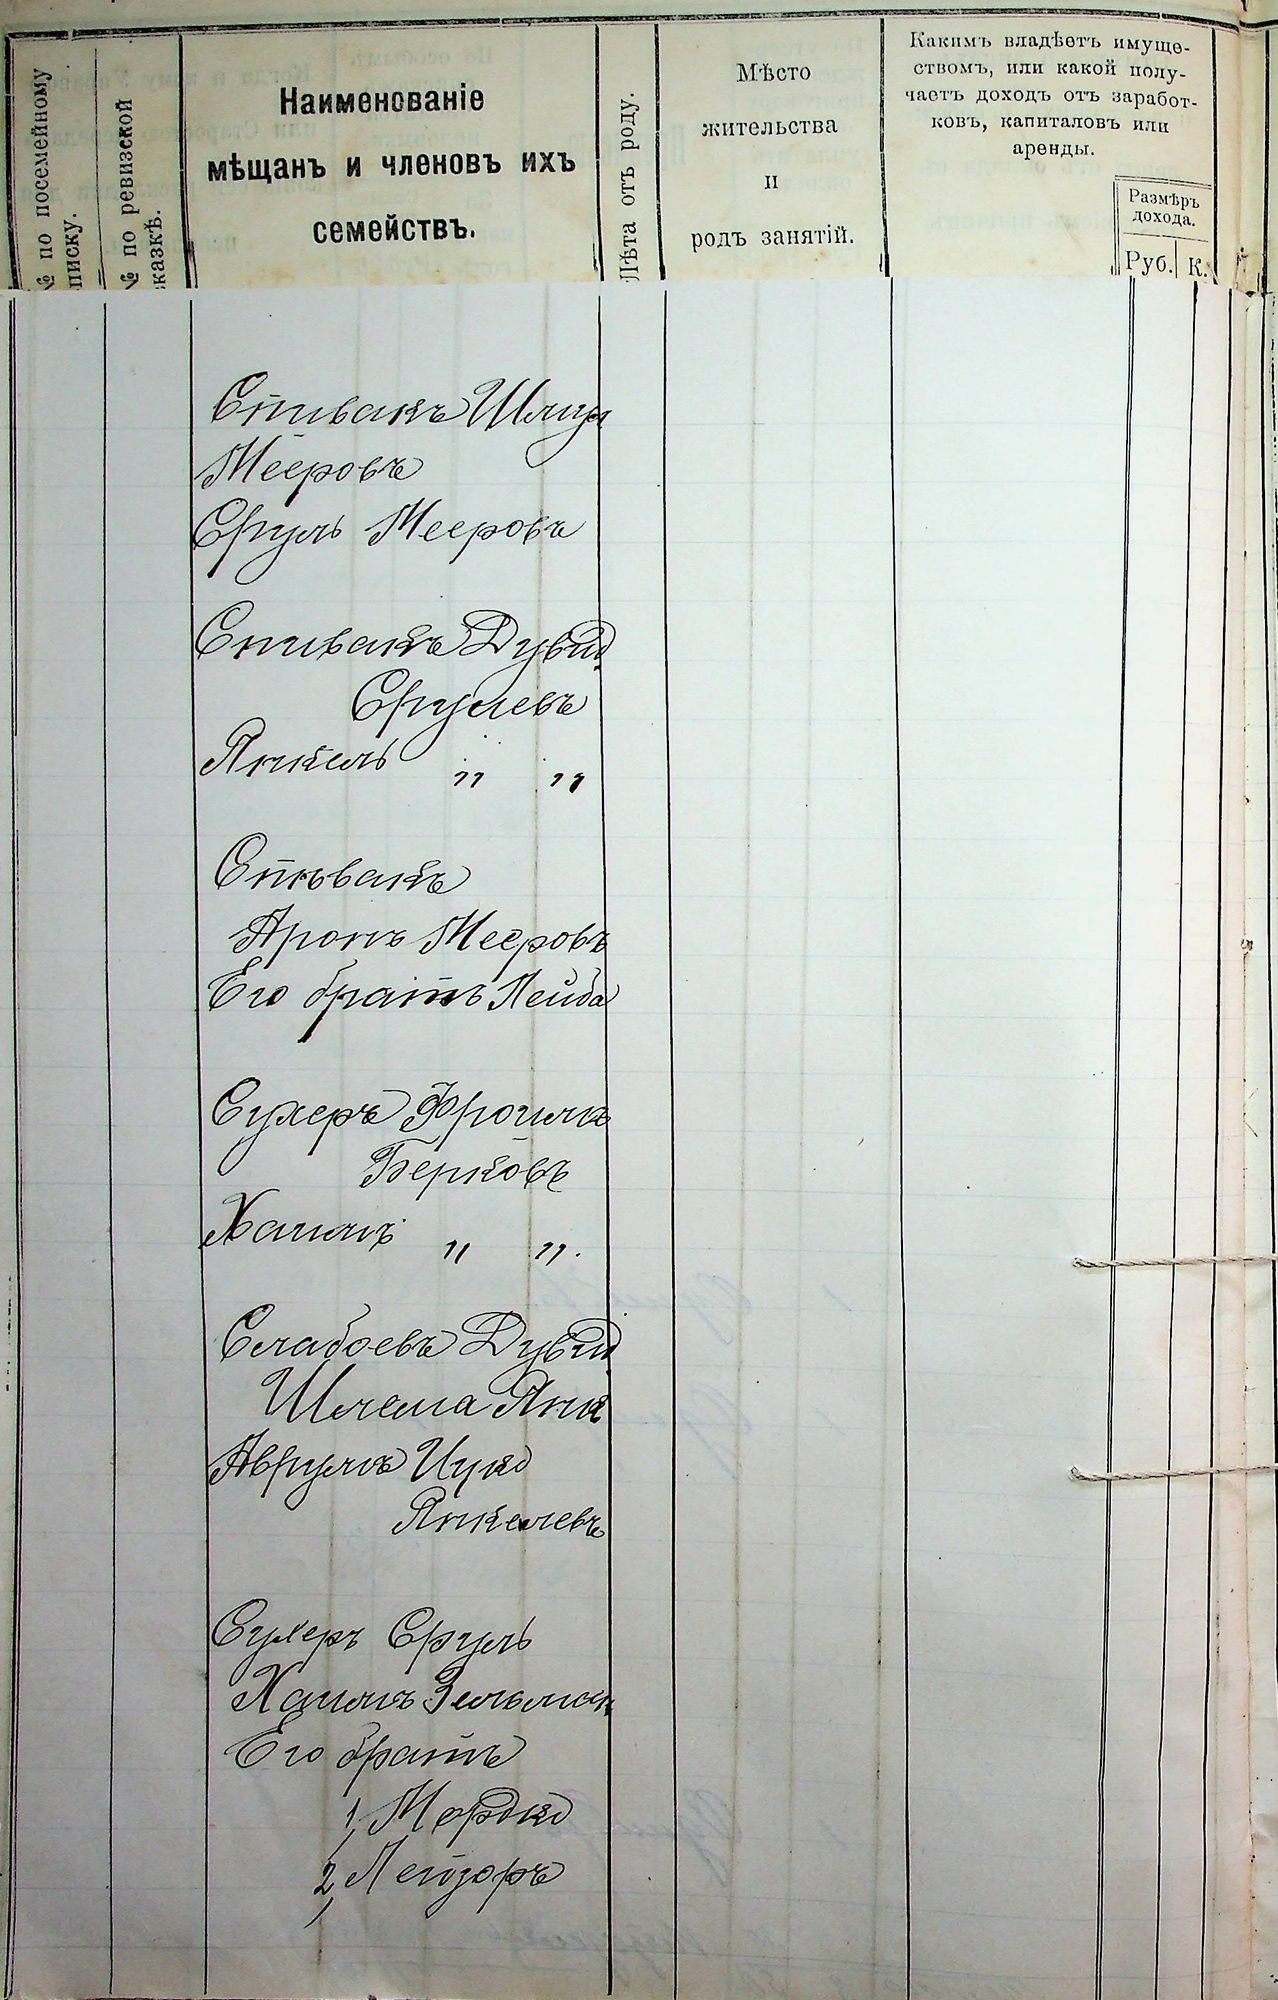 № по посемейному
списку.
№ по ревизской
сказкѣ.
Наименованіе
мѣщанъ и членовъ ихъ
семействъ.
Лѣта отъ роду.
Мѣсто
жительства
и
родъ занятій.
Какимъ владѣетъ имуще-
ствомъ, или какой полу-
чаетъ доходъ отъ заработ-
ковъ, капиталовъ или
аренды.
Размѣръ
дохода.
Руб. К.
Спивакъ Шмул
Мееровъ
Сруль Мееровъ
Спивакъ Дувид
Срулевъ
Янкель " "
Спѣвакъ
Аронъ Мееровъ
Его братъ Лейба
Сухеръ Фроимъ
Берковъ
Хаимъ " "
Слабоевъ Дувид
Шлема Янк
Аврумъ Ицко
Янкелевъ
Сухеръ Сруль
Хаимъ Зельман
Его братъ
1, Мордко
2, Лейзоръ